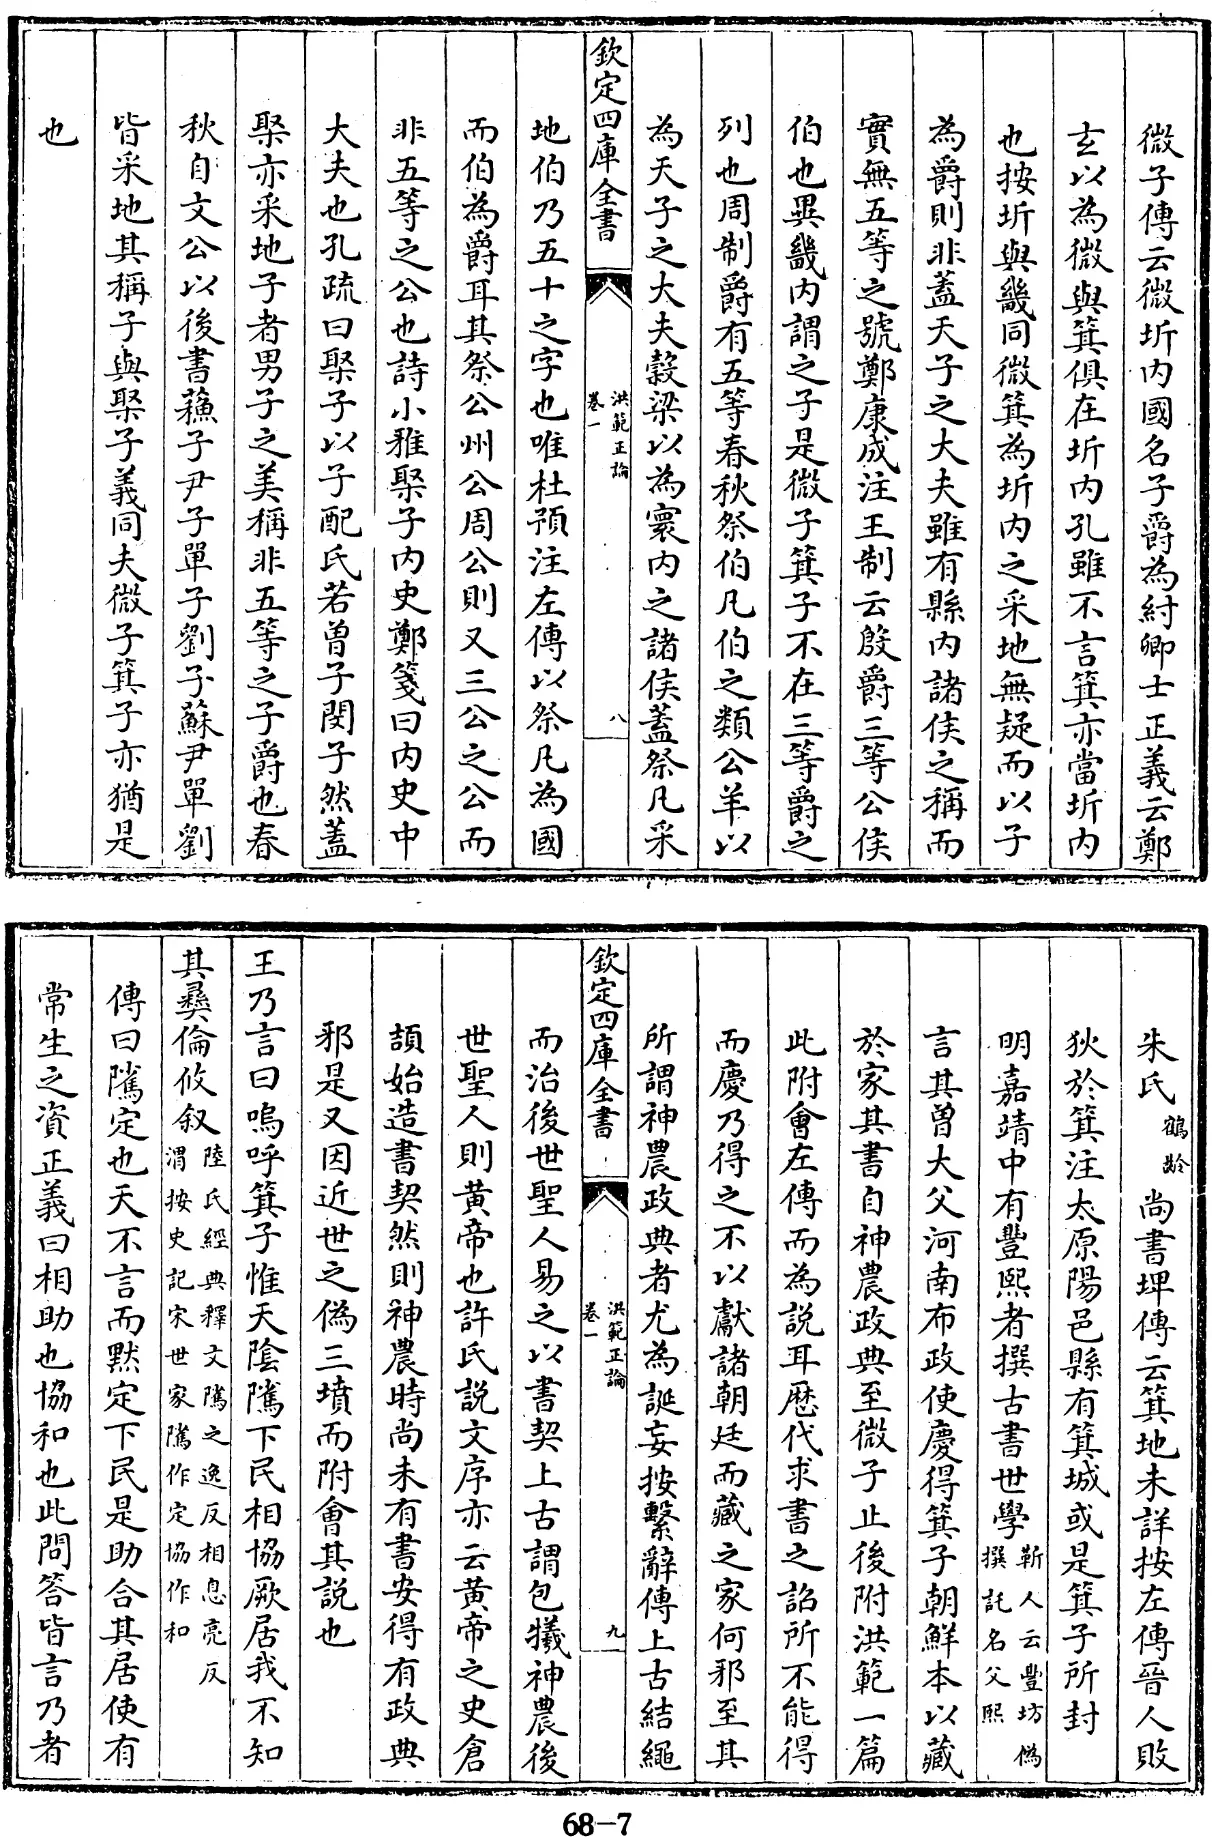 微子傳云微圻内國名子爵為紂卿士正義云鄭
玄以為微與箕俱在圻内孔雖不言箕亦當圻内
也按圻與畿同微箕為圻内之采地無疑而以子
為爵則非蓋天子之大夫雖有縣内諸侯之稱而
實無五等之號鄭康成注王制云殷爵三等公侯
伯也異畿内謂之子是微子箕子不在三等爵之
列也周制爵有五等春秋祭伯凡伯之類公羊以
為天子之大夫穀梁以為寰内之諸侯蓋祭凡采
欽定四庫全書
洪範正論
卷一
八
地伯乃五十之字也唯杜預注左傳以祭凡為國
而伯為爵耳其祭公州公周公則又三公之公而
非五等之公也詩小雅棸子内史鄭箋曰内史中
大夫也孔疏曰棸子以子配氏若曾子閔子然蓋
棸亦采地子者男子之美稱非五等之子爵也春
秋自文公以後書蘓子尹子單子劉子蘇尹單劉
皆采地其稱子與棸子義同夫微子箕子亦猶是
也
朱氏鶴齡尚書埤傳云箕地未詳按左傳晉人敗
狄於箕注太原陽邑縣有箕城或是箕子所封
明嘉靖中有豐熙者撰古書世學靳人云豐坊偽撰託名父熙
言其曽大父河南布政使慶得箕子朝鮮本以藏
於家其書自神農政典至微子止後附洪範一篇
此附會左傳而為説耳歴代求書之詔所不能得
而慶乃得之不以獻諸朝廷而藏之家何邪至其
所謂神農政典者尤為誕妄按繫辭傳上古結繩
欽定四庫全書
洪範正論
卷一
九
而治後世聖人易之以書契上古謂包犧神農後
世聖人則黄帝也許氏説文序亦云黄帝之史倉
頡始造書契然則神農時尚未有書安得有政典
邪是又因近世之偽三墳而附會其説也
王乃言曰嗚呼箕子惟天陰隲下民相協厥居我不知
其彝倫攸叙陸氏經典釋文隲之逸反相息亮反渭按史記宋世家隲作定協作和
傳曰隲定也天不言而黙定下民是助合其居使有
常生之資正義曰相助也協和也此問答皆言乃者
68-7